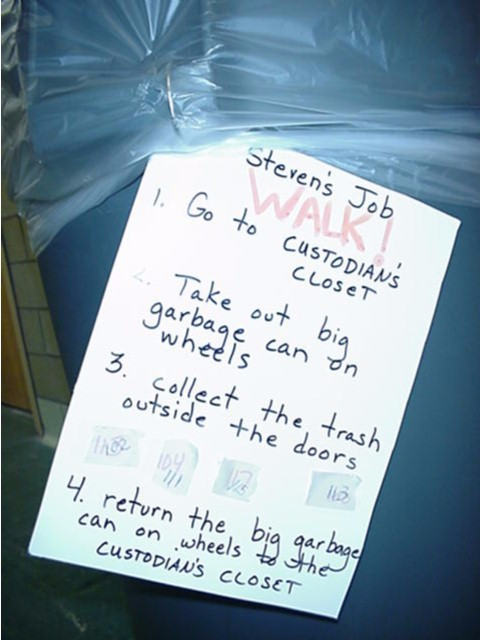 Steven's Job
WALK!
1. Go to CUSTODIAN'S
CLOSET
2. Take out big
garbage can on
wheels
3. collect the trash
outside the doors
104
4. return the big garbage
can on wheels to the
CUSTODIAN'S CLOSET